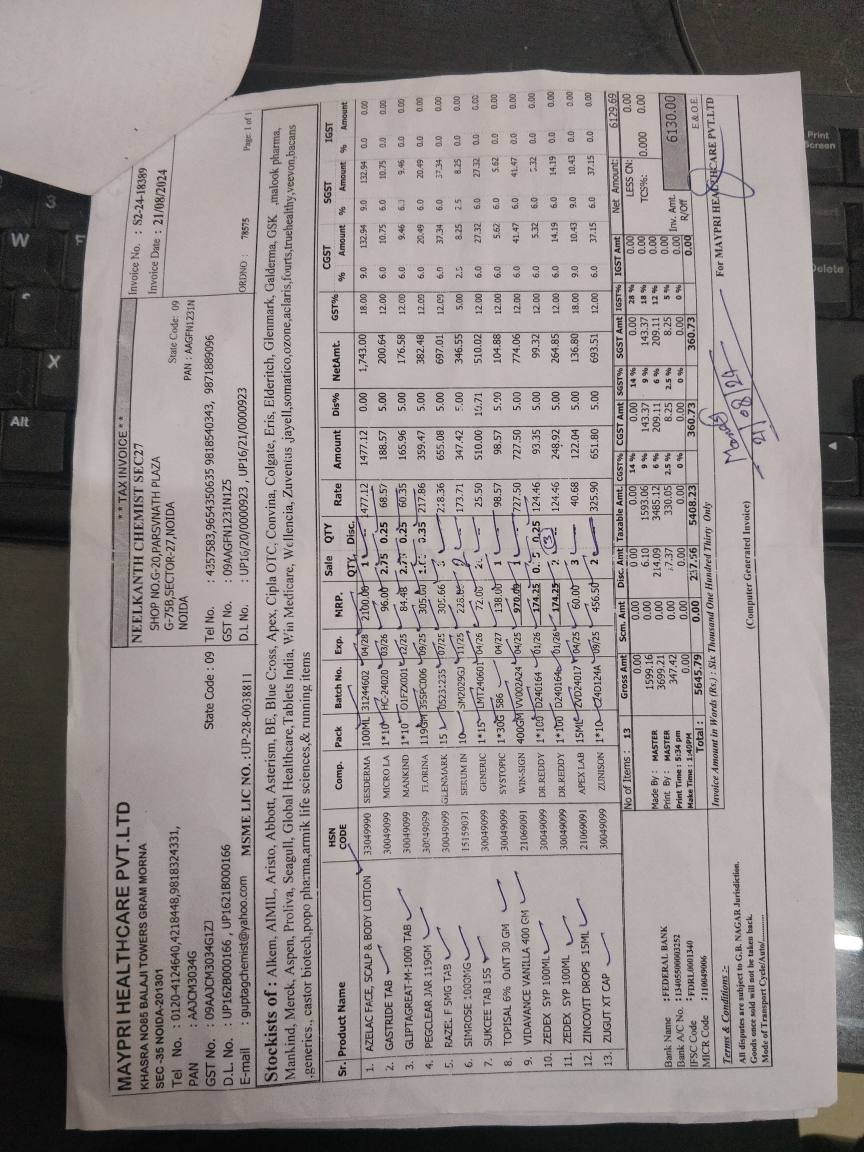 ** TAX INVOICE **
MAYPRI HEALTHCARE PVT.LTD
KHASRA NO85 BALAJI TOWERS GRAM MORNA
SEC -35 NOIDA-201301
Tel No. : 0120-4124640,4218448,9818324331,
PAN : AAJCM3034G
GST No. : 09AAJCM3034G1ZJ
D.L. No. : UP162B000166 , UP1621B000166
E-mail : guptagchemist@yahoo.com MSME LIC NO. :UP-28-0038811
NEELKANTH CHEMIST SEC27
SHOP NO.G-20,PARSVNATH PLAZA
G-75B,SECTOR-27,NOIDA
NOIDA
State Code : 09
Tel No. : 4357583,9654350635 9818540343, 9871889096
GST No. : 09AAGFN1231N1Z5
D.I. No. : UP16/20/0000923 , UP16/21/0000923
Invoice No. : S2-24-18389
Invoice Date : 21/08/2024
State Code: 09
PAN : AAGFN1231N
ORDNO : 78575 Page 1 of 1
Stockists of : Alkem, AIMIL, Aristo, Abbott, Asterism, BE, Blue Cross, Apex, Cipla OTC, Convina, Colgate, Eris, Elderitch, Glenmark, Galderma, GSK ,malook pharma,
Mankind, Merck, Aspen, Proliva, Seagull, Global Healthcare,Tablets India, Win Medicare, Wellencia, Zuventus ,jayell,somatico,ozone,aclaris,fourts,truehealthy,veevon,bacans
,generics,. castor biotech,popo pharma,armik life sciences,& running items
Sr. Product Name HSN CODE Comp. Pack Batch No. Exp. MRP. Sale QTY. QTY Disc. Rate Amount Dis% NetAmt. GST% CGST % Amount SGST % Amount IGST % Amount
1. AZELAC FACE, SCALP & BODY LOTION 33049990 SESDERMA 100ML 31244602 04/28 2100.00 1 1477.12 1477.12 0.00 1,743.00 18.00 9.0 132.94 9.0 132.94 0.0 0.00
2. GASTRIDE TAB 30049099 MICRO LA 1*10 HC-24020 03/26 96.00 2.75 0.25 68.57 188.57 5.00 200.64 12.00 6.0 10.75 6.0 10.75 0.0 0.00
3. GLIPTAGREAT-M-1000 TAB 30049099 MANKIND 1*10 O1FZX001 12/25 84.48 2.75 0.25 60.35 165.96 5.00 176.58 12.00 6.0 9.46 6.0 9.46 0.0 0.00
4. PEGCLEAR JAR 119GM 30049099 FLORINA 119GM 355PC006 09/25 305.00 217.86 359.47 5.00 382.48 12.00 6.0 20.49 6.0 20.49 0.0 0.00
5. RAZEL F 5MG TAB 30049099 GLENMARK 15 05231235 07/25 305.66 3 218.36 655.08 5.00 697.01 12.00 6.0 37.34 6.0 37.34 0.0 0.00
6. SIMROSE 1000MG 15159091 SERUM IN 10 SM2029GJ 11/25 2 173.71 347.42 5.00 346.55 5.00 2.5 8.25 2.5 8.25 0.0 0.00
7. SUKCEE TAB 15S 30049099 GENERIC 1*15 LMT240601 04/26 72.00 25.50 510.00 10.71 510.02 12.00 6.0 27.32 6.0 27.32 0.0 0.00
8. TOPISAL 6% OINT 30 GM 30049099 SYSTOPIC 1*30G 586 04/27 138.00 1 98.57 98.57 5.00 104.88 12.00 6.0 5.62 6.0 5.62 0.0 0.00
9. VIDAVANCE VANILLA 400 GM 21069091 WIN-SIGN 400GM VV002A24 04/25 970.00 1 727.50 727.50 5.00 774.06 12.00 6.0 41.47 6.0 41.47 0.0 0.00
10. ZEDEX SYP 100ML 30049099 DR.REDDY 1*100 D240164 01/26 174.25 0.75 0.25 124.46 93.35 5.00 99.32 12.00 6.0 5.32 6.0 5.32 0.0 0.00
11. ZEDEX SYP 100ML 30049099 DR.REDDY 1*100 D240164 01/26 174.25 2 (3) 124.46 248.92 5.00 264.85 12.00 6.0 14.19 6.0 14.19 0.0 0.00
12. ZINCOVIT DROPS 15ML 21069091 APEX LAB 15ML ZVD24017 04/25 60.00 3 40.68 122.04 5.00 136.80 18.00 9.0 10.43 9.0 10.43 0.0 0.00
13. ZUGUT XT CAP 30049099 ZUNISON 1*10 CZ4D124A 09/25 456.50 2 325.90 651.80 5.00 693.51 12.00 6.0 37.15 6.0 37.15 0.0 0.00
No of Items : 13
Made By : MASTER
Print By : MASTER
Print Time : 5:34 pm
Make Time : 1:40PM
Gross Amt Scm. Amt Disc. Amt Taxable Amt. CGST% CGST Amt SGST% SGST Amt IGST% IGST Amt
0.00 0.00 0.00 0.00 14 % 0.00 14 % 0.00 28 % 0.00
1599.16 0.00 6.10 1593.06 9 % 143.37 9 % 143.37 18 % 0.00
3699.21 0.00 214.09 3485.12 6 % 209.11 6 % 209.11 12 % 0.00
347.42 0.00 17.37 330.05 2.5 % 8.25 2.5 % 8.25 5 % 0.00
0.00 0.00 0.00 0.00 0 % 0.00 0 % 0.00 0 % 0.00
Total : 5645.79 0.00 237.56 5408.23 360.73 360.73 0.00
Net Amount: 6129.69
LESS CN: 0.00
TCS%: 0.000 0.00
Inv. Amt. R/Off 6130.00
E.& O.E.
Invoice Amount in Words (Rs.) : Six Thousand One Hundred Thirty Only
Bank Name : FEDERAL BANK
Bank A/C No. : 13405500003252
IFSC Code : FDRL0001340
MICR Code : 110049006
Terms & Conditions :-
All disputes are subject to G.B. NAGAR Jurisdiction.
Goods once sold will not be taken back.
Mode of Transport Cycle/Auto/............
(Computer Generated Invoice)
For MAYPRI HEALTHCARE PVT.LTD
21/08/24
W
F
X
3
Alt
Print Screen
Delete